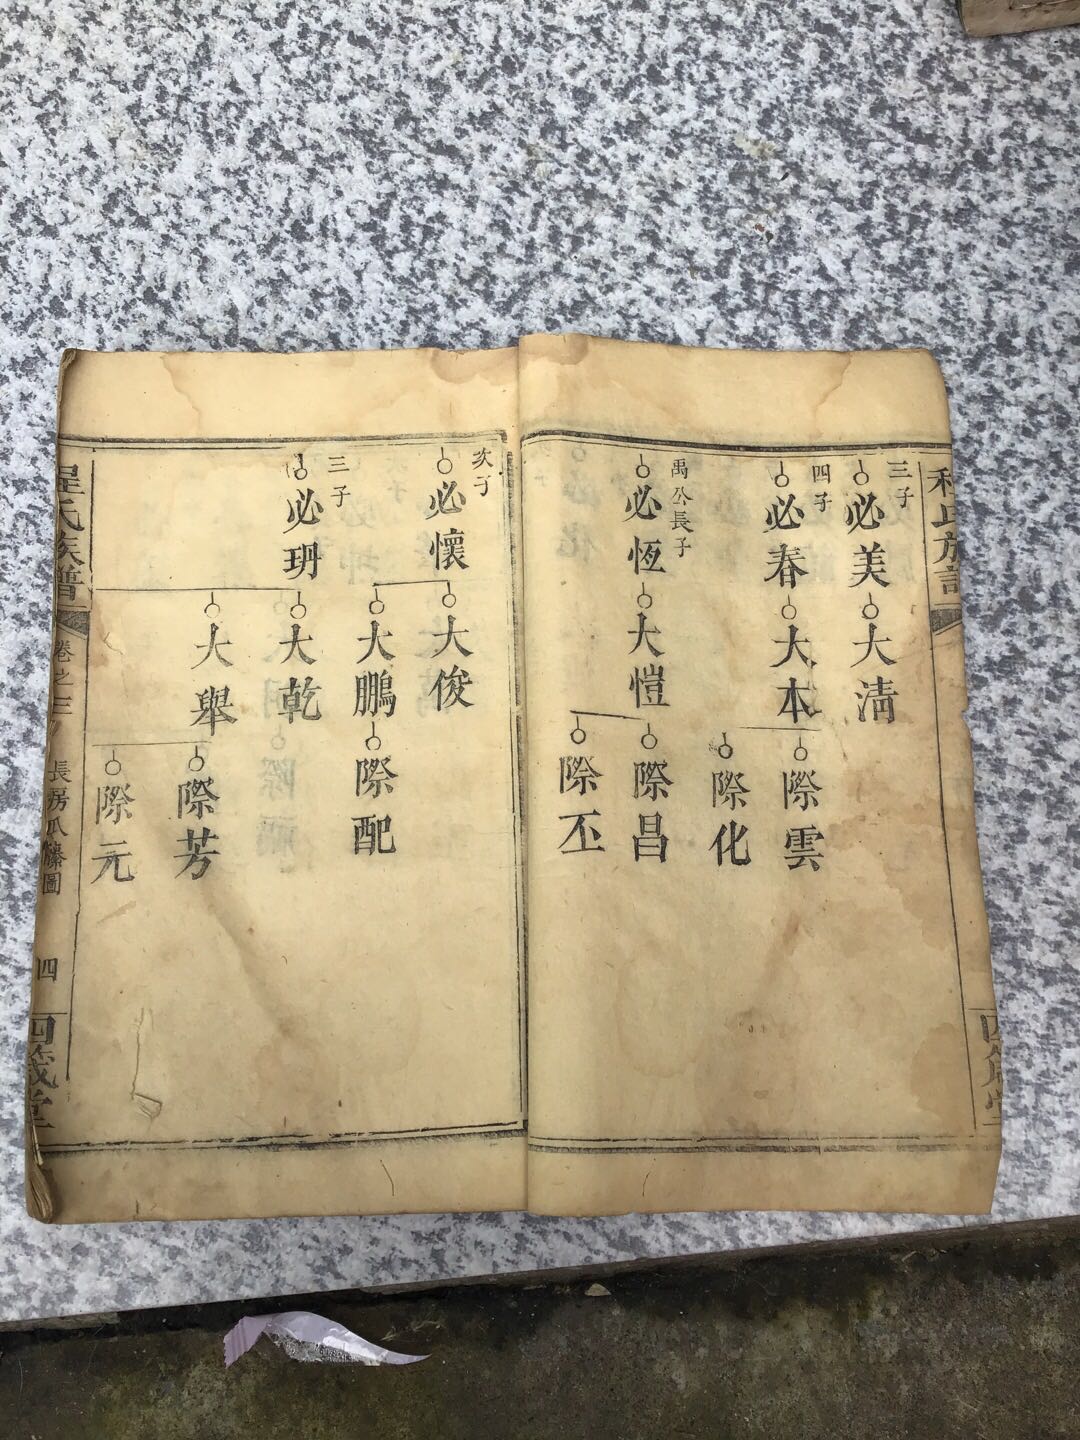 程氏族譜
四箴堂
三子
必美
大清
四子
必春
大本
際雲
際化
禹公長子
必恆
大愷
際昌
際丕
次子
必懷
大俊
大鵬
際配
三子
必玬
大乾
大舉
際芳
際元
程氏族譜
卷之三
長房瓜藤圖
四
四箴堂